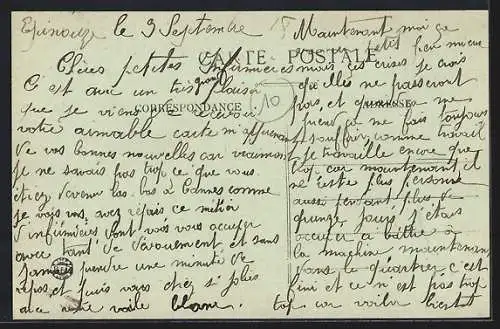 Epinouze le 3 Septembre
CARTE POSTALE
CORRESPONDANCE
Chères petites infirmières
C'est avec un très gros plaisir
que je viens de recevoir
votre aimable carte m'apprenant
de vos bonnes nouvelles car vraiment
je ne savais pas trop ce que vous
étiez devenues là bas à Cannes comme
je vois vous avez repris ce métier
d'infirmières dont vous vous occuper
avec tant de dévouement et sans
jamais prendre une minute de
repos et puis vous chez si plus
avec votre voile blanc.
Maintenant moi ça
va un petit peu mieux
mais ces crises je crois
qu'elles ne passeront
pas, et quand ça me
prend ça me fais toujours
souffrir, comme travail
je travaille encore que
trop car maintenant il
ne reste plus personne
aussi pendant plus de
quinze jours j'étais
occuper à battre à
la machine maintenant
dans le quartier c'est
fini et ce n'est pas trop
trop car voilà